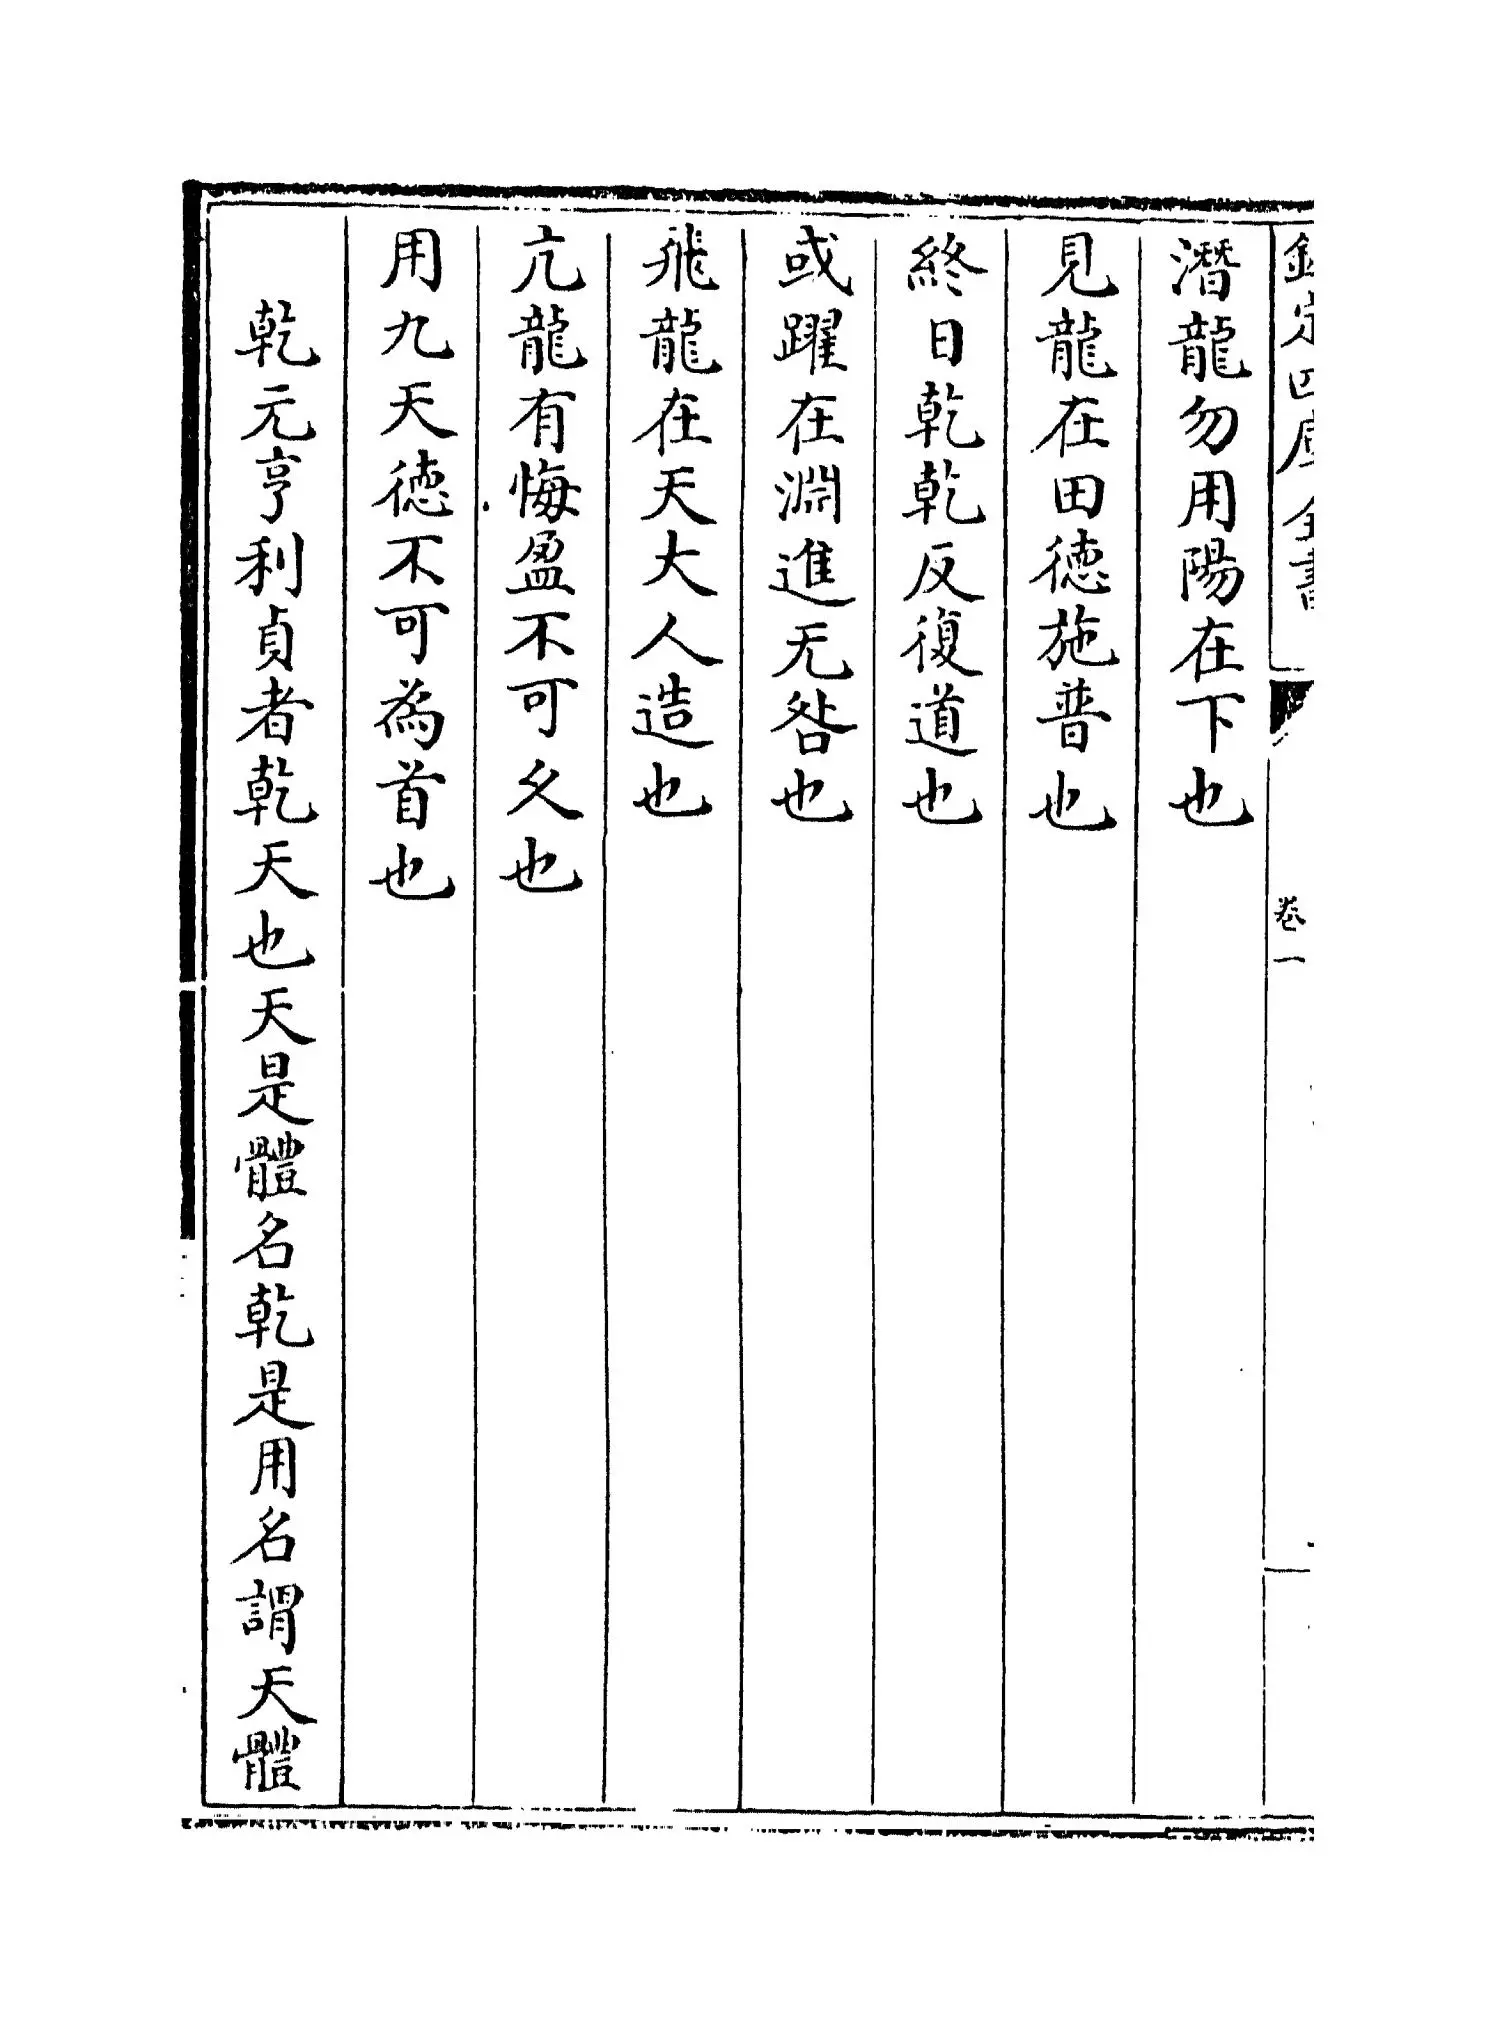 欽定四庫全書
卷一
潛龍勿用陽在下也
見龍在田德施普也
終日乾乾反復道也
或躍在淵進无咎也
飛龍在天大人造也
亢龍有悔盈不可久也
用九天德不可為首也
乾元亨利貞者乾天也天是體名乾是用名謂天體